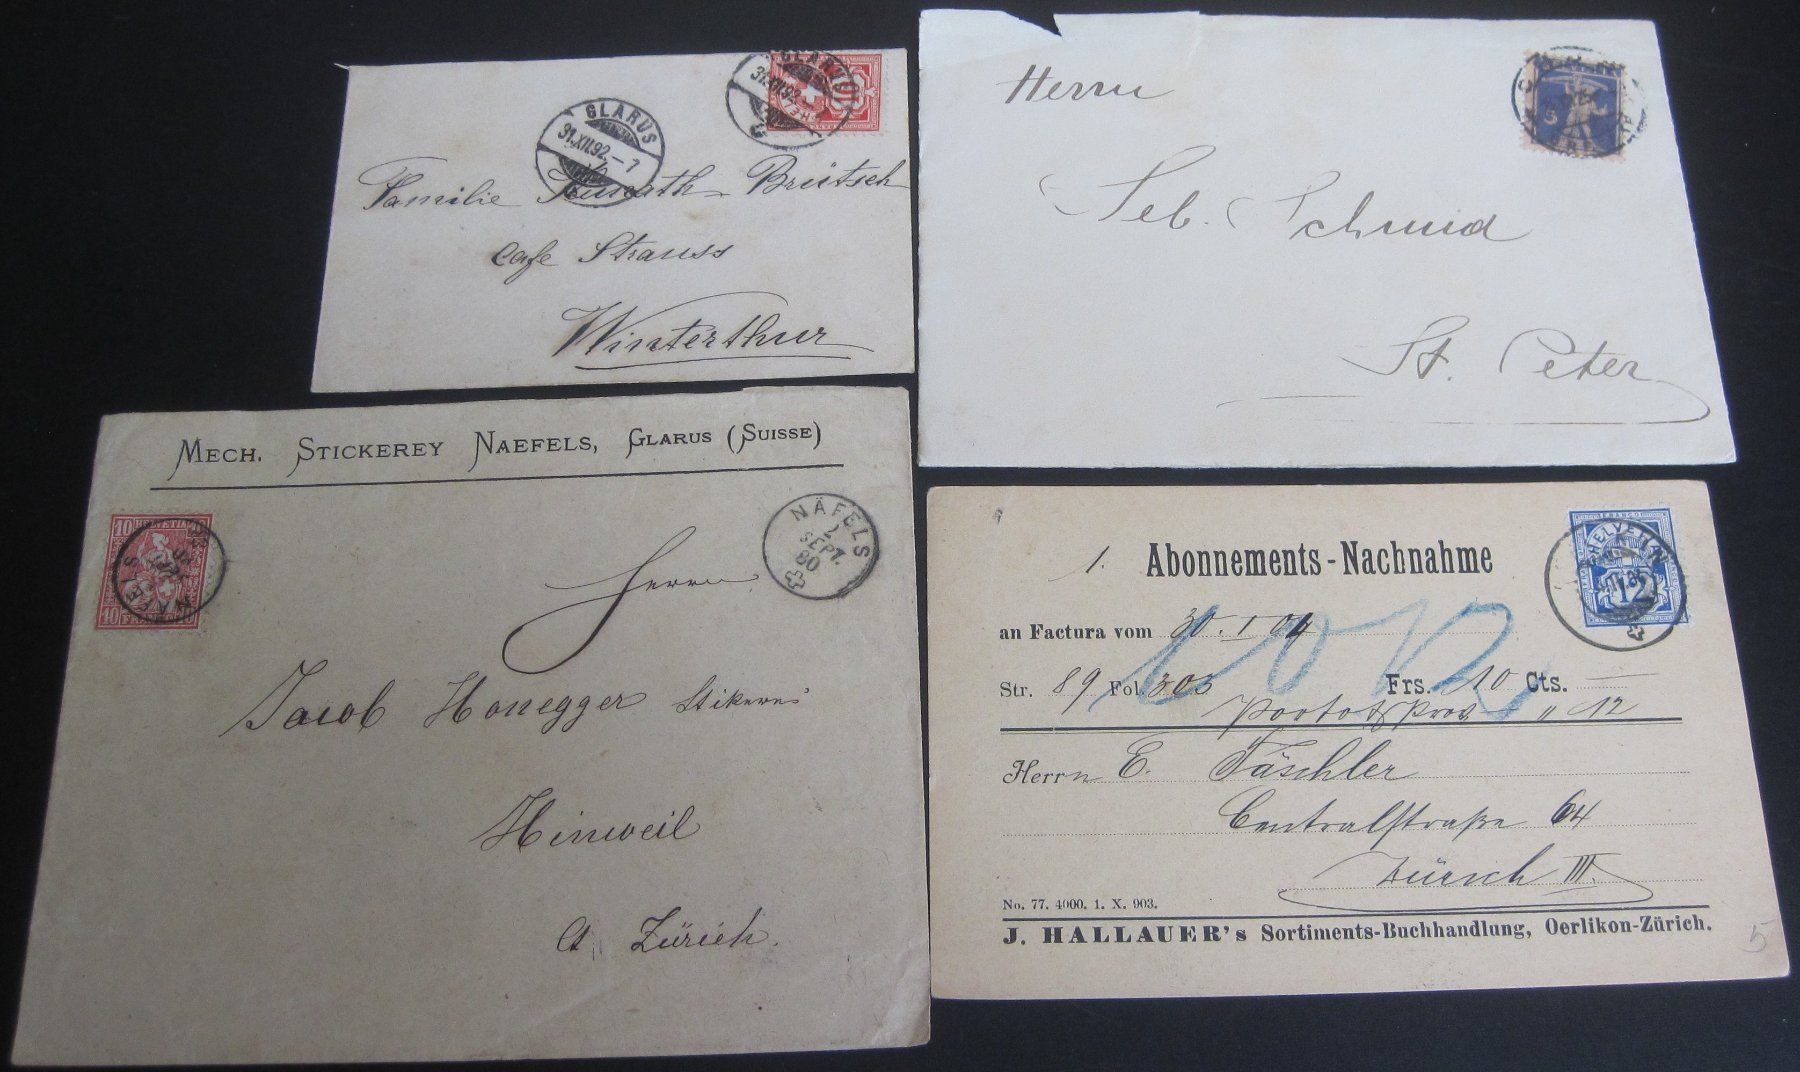 GLARUS
31.XII.92.-7
GLARUS
31.XII.92.-7
10
HELVETIA
FRANCO
Familie Brütsch
Cafe Strauss
Winterthur
Herrn
Seb. Schmid
St. Peter
MECH. STICKEREY NAEFELS, GLARUS (SUISSE)
10 HELVETIA
10 FRANCO 10
NÄFELS
NÄFELS
2
SEPT.
80
Herrn
Jacob Honegger
Hinweil
Ct. Zürich.
FRANCO
HELVETIA
12
1. Abonnements-Nachnahme
an Factura vom 30. I 04
Str. 89 Fol. 303 Frs. 10 Cts. —
Porto & Prov. " 12
Herrn E. Täschler
Centralstraße 64
Zürich III.
No. 77. 4000. 1. X. 903.
J. HALLAUER's Sortiments-Buchhandlung, Oerlikon-Zürich.
5